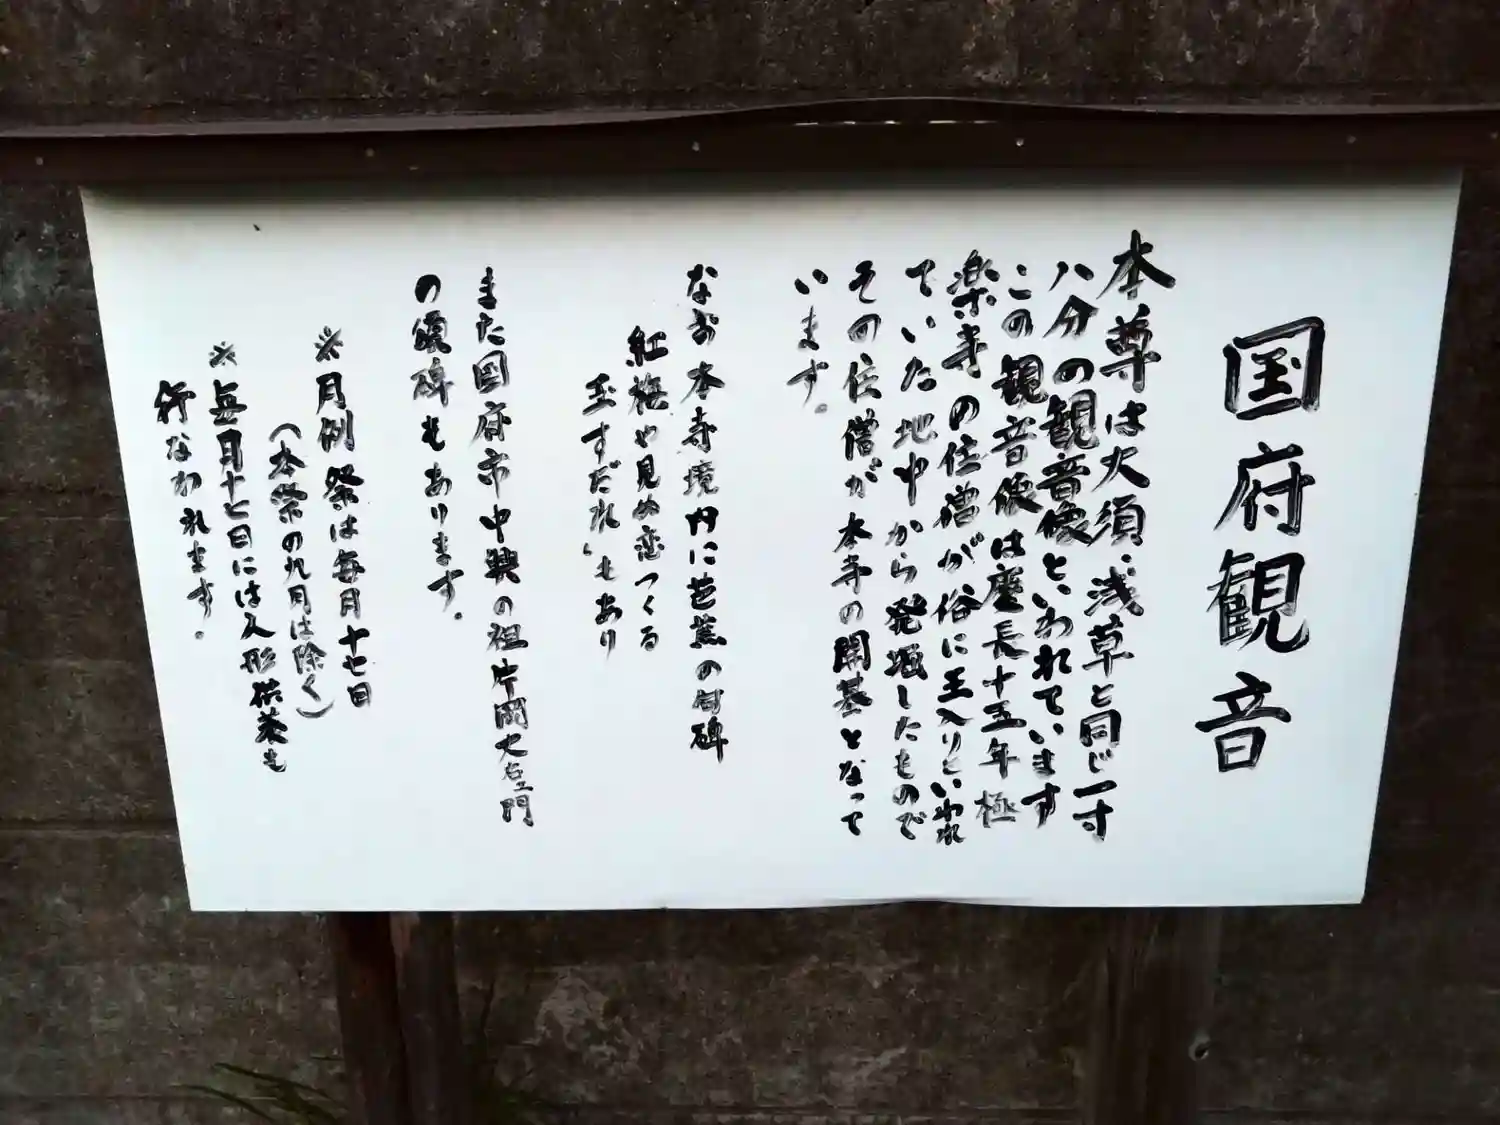 国府観音
本尊は大須、浅草と同じ一寸
八分の観音像といわれています
この観音像は慶長十五年極
楽寺の住僧が俗に玉入りといわれ
ていた地中から発掘したもので
その住僧が本寺の開基となって
います。
なお本寺境内に芭蕉の句碑
紅梅や見ぬ恋つくる
玉すだれ」もあり
また国府市中興の祖片岡大右エ門
の頌碑もあります。
※月例祭は毎月十七日
(本祭の九月は除く)
※毎月十七日には人形供養も
行なわれます。